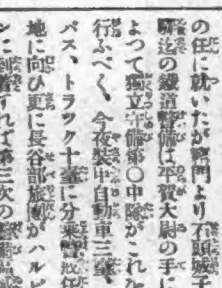 の任に就いたが窰門より石頭城子
驛迄の鐵道警備は平賀大尉の手に
よつて獨立守備第〇中隊がこれを
行ふべく、今夜裝甲自動車三臺、
バス、トラック十臺に分乘警戒任
地に向ひ更に長谷部旅團がハルビ
ンに到着すれば第三次の